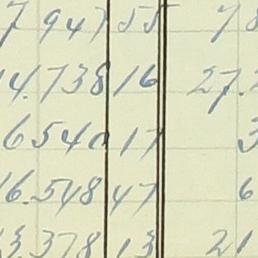 7 947 55 78
14.738 16 27.2
6540 17 3
16.548 47 6
13.378 13 21